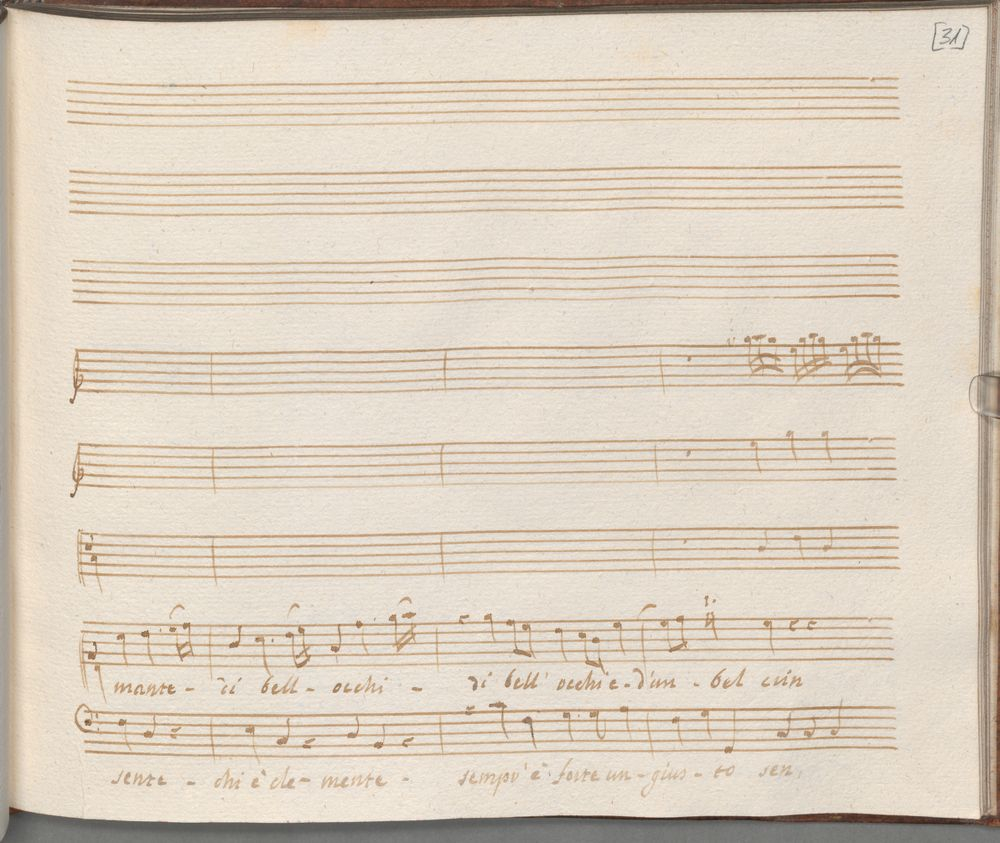 [31]
mante - di bell - occhi - di bell' occhi e - d'un - bel crin
sente - chi è cle - mente - sempr' è forte un - gius - to sen,